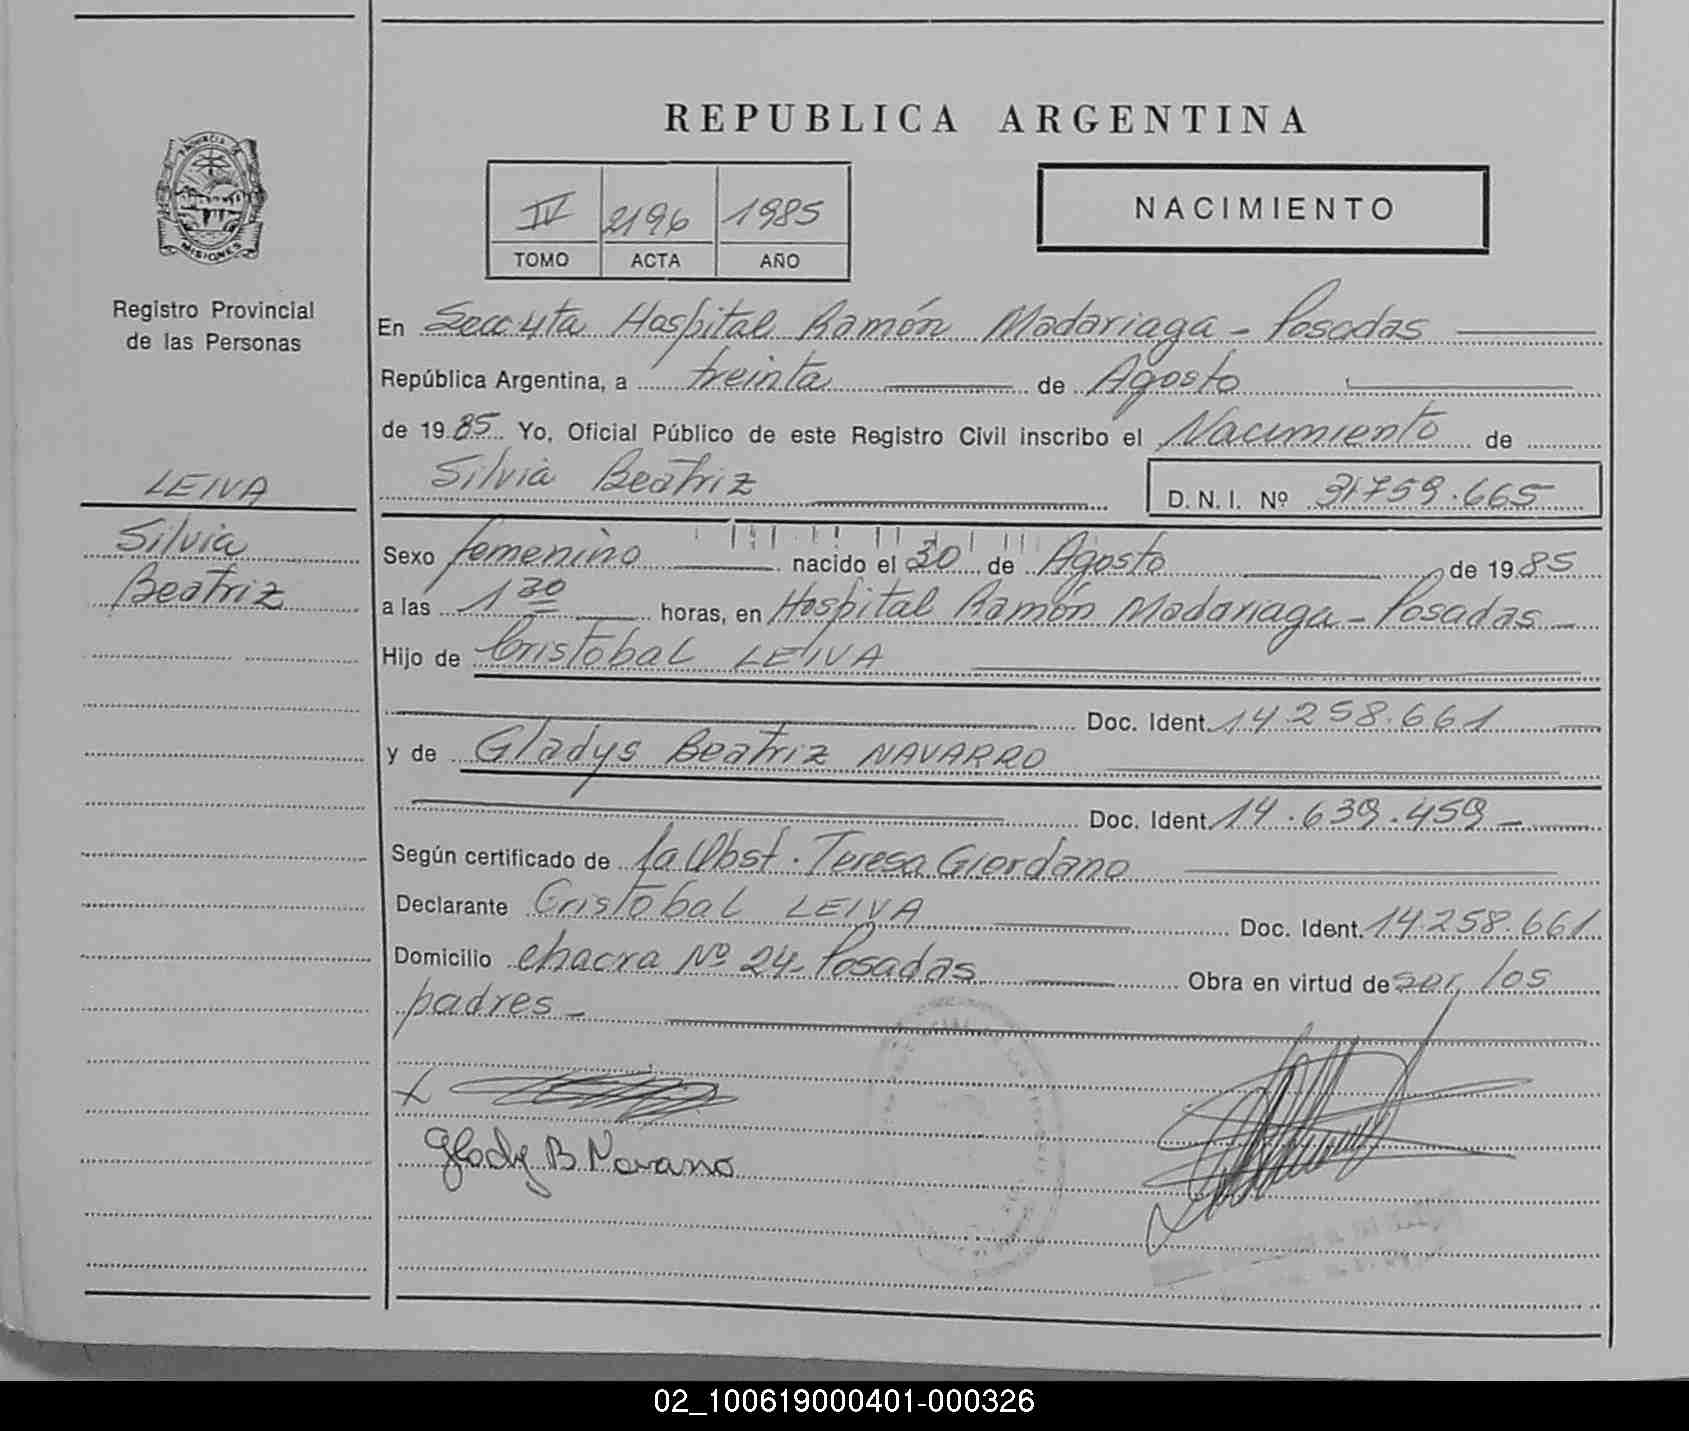 REPUBLICA ARGENTINA
PROVINCIA DE
MISIONES
IV 2196 1985
TOMO ACTA AÑO
NACIMIENTO
Registro Provincial
de las Personas
En Secc 4ta Hospital Ramón Madariaga - Posadas
República Argentina, a treinta de Agosto
de 1985 Yo, Oficial Público de este Registro Civil inscribo el Nacimiento de
Silvia Beatriz D.N.I. Nº 31759.665
LEIVA
Silvia
Beatriz
Sexo femenino nacido el 30 de Agosto de 1985
a las 1 30 horas, en Hospital Ramón Madariaga - Posadas
Hijo de Cristobal LEIVA
Doc. Ident. 14.258.661
y de Gladys Beatriz NAVARRO
Doc. Ident. 14.639.459
Según certificado de la Obst. Teresa Giordano
Declarante Cristobal LEIVA Doc. Ident. 14.258.661
Domicilio chacra Nº 24 - Posadas Obra en virtud de ser los
padres -
x
Glady B Navarro
02_100619000401-000326